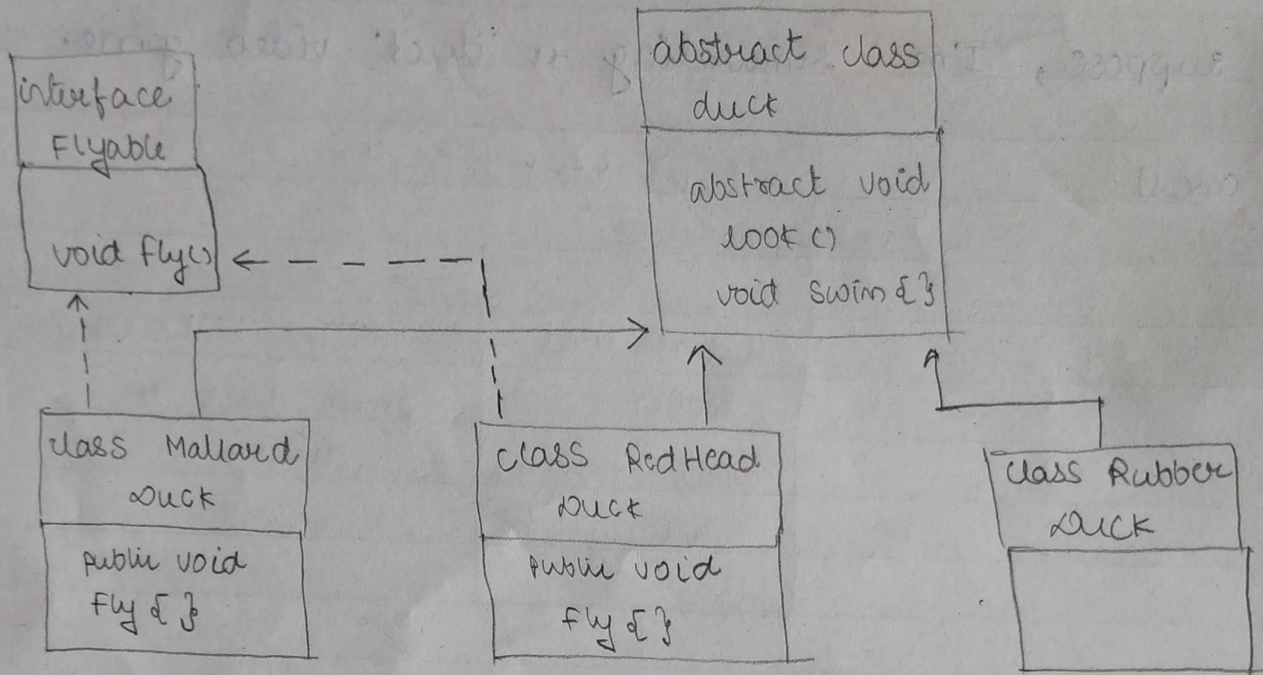 interface
Flyable
void fly()
abstract class
duck
abstract void
look()
void swim{}
class Mallard
Duck
public void
fly{}
class RedHead
Duck
public void
fly{}
class Rubber
Duck